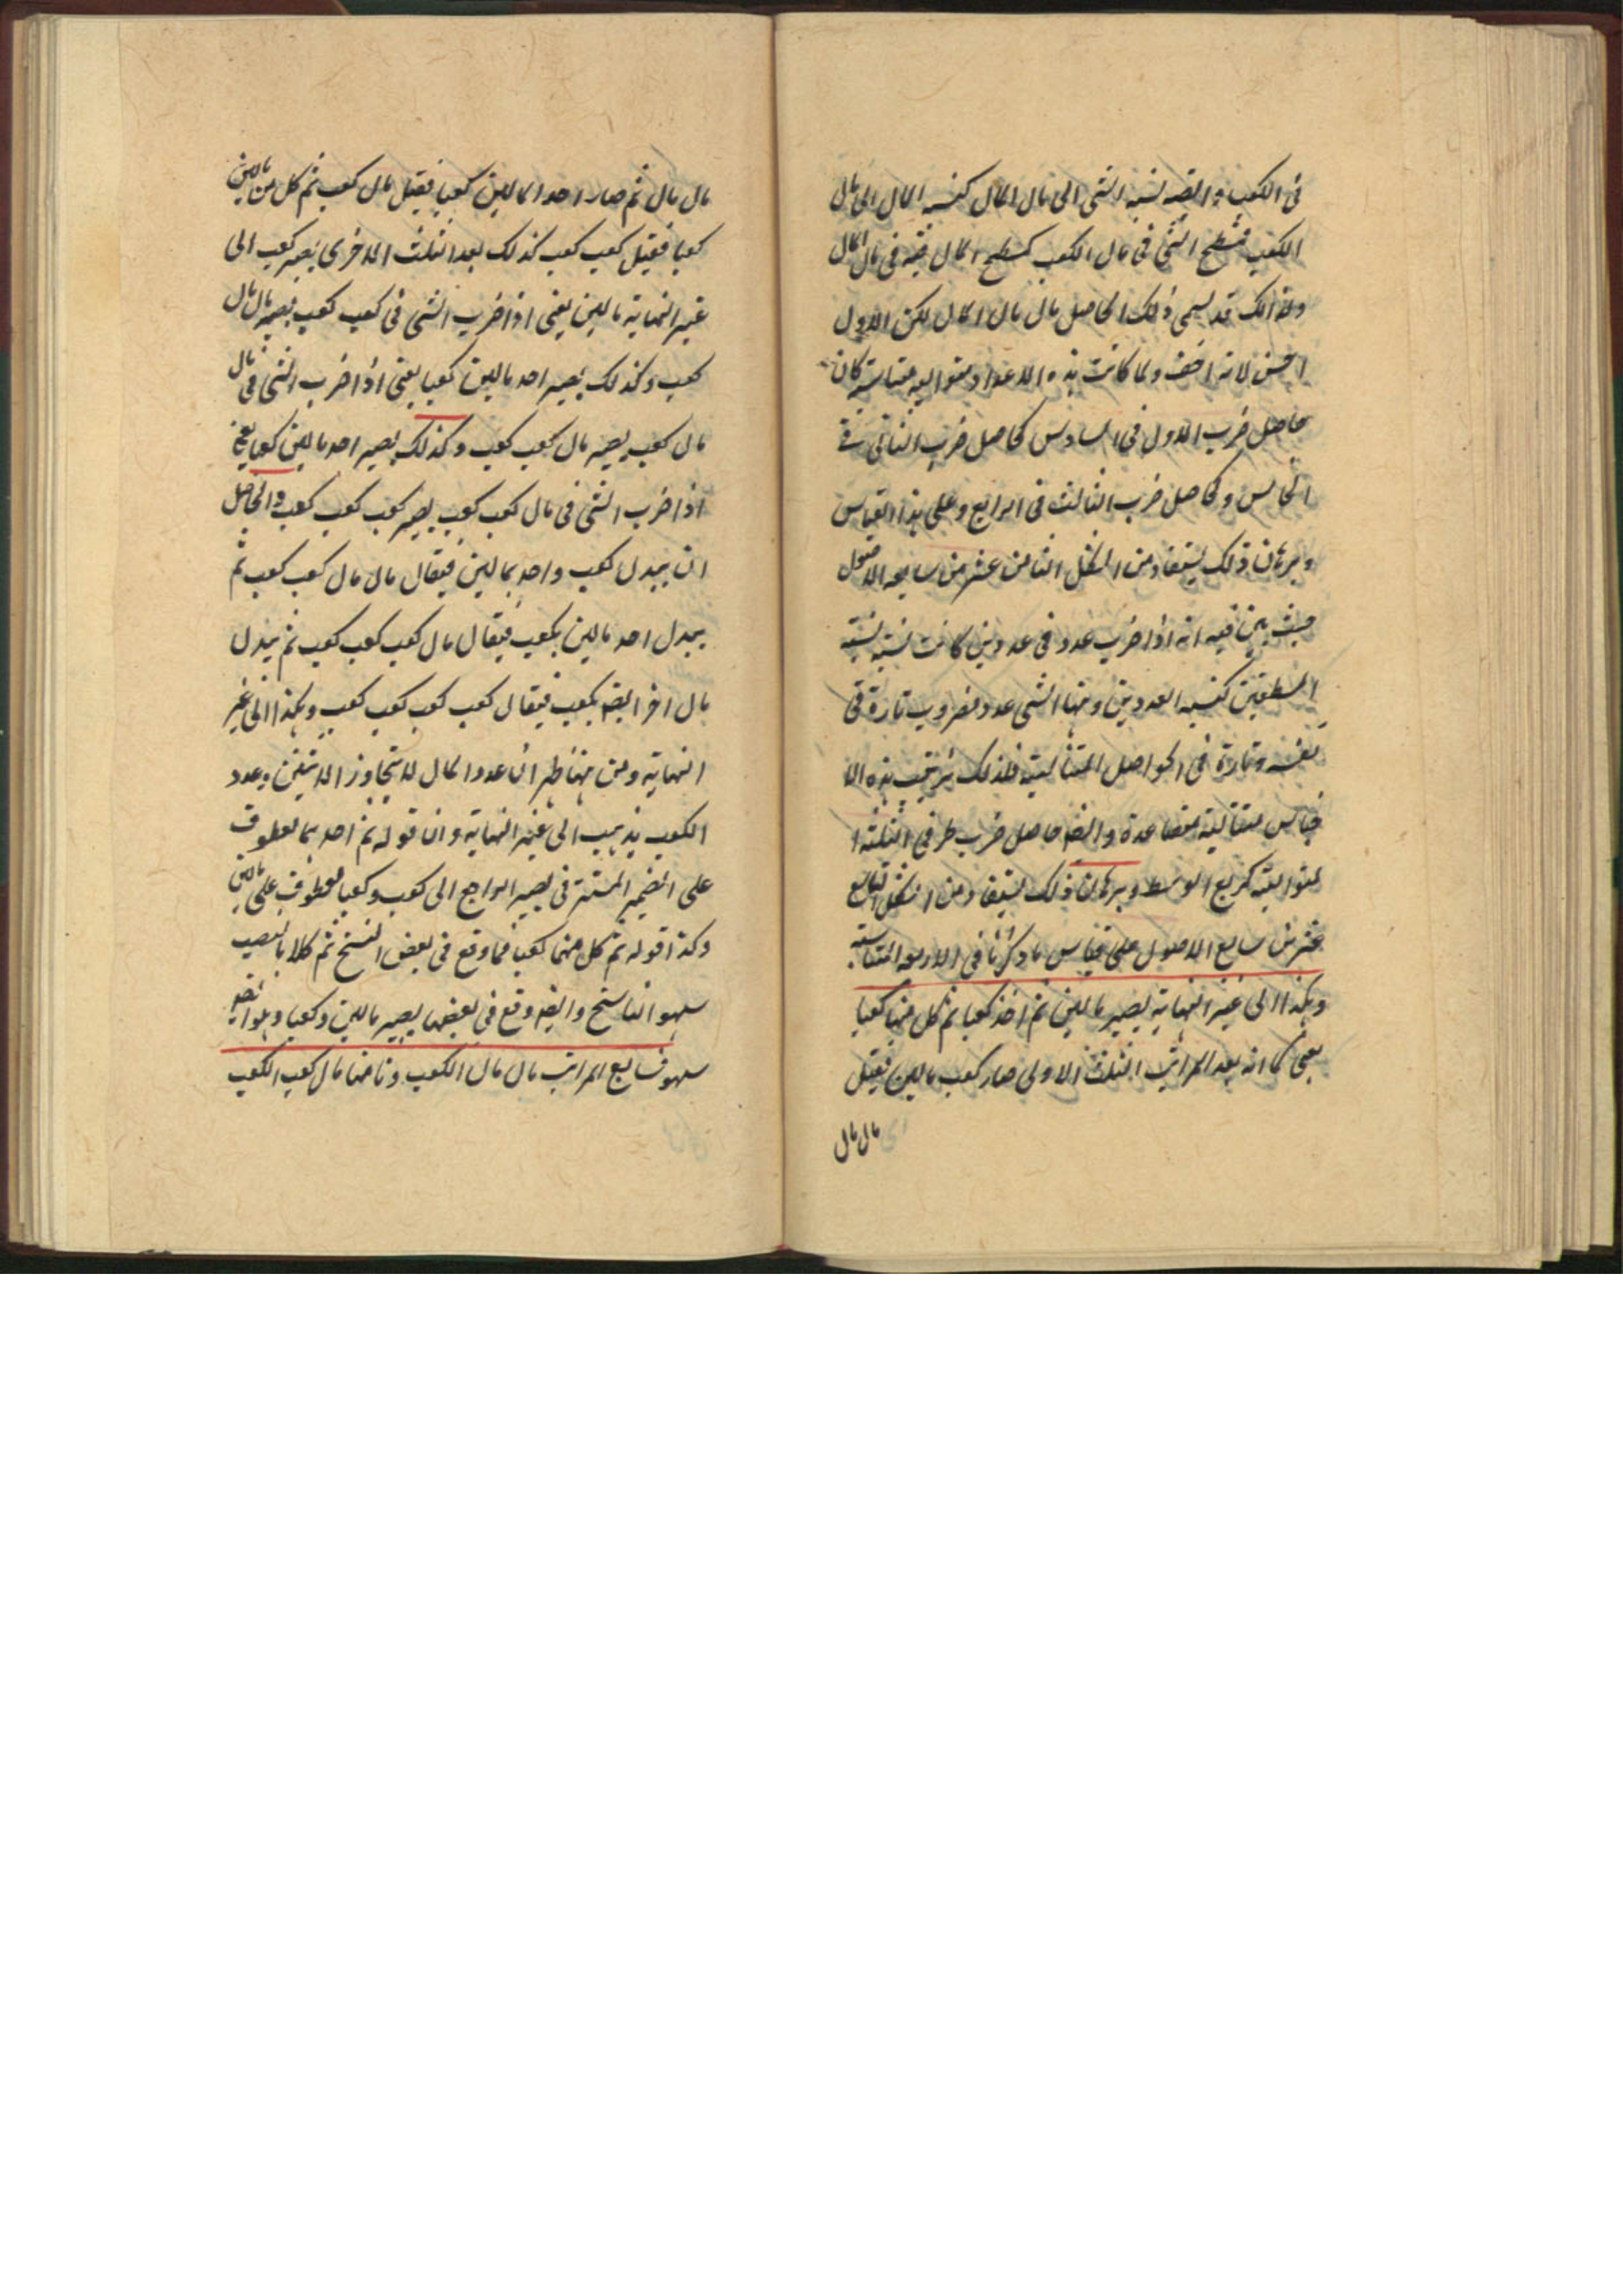 فى الكعب وايضه نسبة الشى الى مال المال كنسبة المال الى مال
الكعب فسطح الشى فى مال الكعب كسطح المال فيه فى مال المال
ولذلك قد يسمى ذلك الحاصل مال مال المال لكن الاول
احسن لانه اخف ولما كانت هذه الاعداد متواليه متناسبة كان
حاصل ضرب الاول فى السادس كحاصل ضرب الثانى فى
الخامس وكحاصل ضرب الثالث فى الرابع وعلى هذا القياس
وبرهان ذلك يستفاد من الشكل الثامن عشر من سابعه الاصول
حيث بين فيه انه اذا ضرب عدد فى عددين كانت نسبة نسبته
المسطحين كنسبه العددين وههنا الشى عدد مضروب تارة فى
نفسه وتارة فى الحواصل المتتالية فلذلك يترتب هذه الا
جناس متتالية متصاعدة وايضه حاصل ضرب طرفى الثلثة ا
لمتوالية كربع الوسط وبرهان ذلك يستفاد من الشكل التاسع
عشر من سابع الاصول على قياس ما ذكرنا فى الاربعه المتناسبة
وهكذا الى غير النهاية يصير مالين ثم اخذ كعبا ثم كل منها كعبا
يعنى كما انه بعد المراتب الثلث الاولى صار كعب مالين فقيل
مال مال
مال مال ثم صار احد المالين كعبا فقيل مال كعب ثم كل من مالين
كعبا فقيل كعب كعب كذلك بعد الثلث الاخرى يصير كعب الى
غير النهاية مالين يعنى اذا ضرب الشى فى كعب كعب يصير مال مال
كعب وكذلك يصير احد مالين كعبا يعنى اذا ضرب الشى فى مال
مال كعب يصير مال كعب كعب وكذلك يصير احد مالين كعبا يعنى
اذا ضرب الشى فى مال كعب كعب يصير كعب كعب كعب والحاصل
ان يبدل كعب واحد بمالين فيقال مال مال كعب كعب ثم
يبدل احد مالين بكعب فيقال مال كعب كعب كعب ثم يبدل
مال اخر ايضه بكعب فيقال كعب كعب كعب كعب وهكذا الى غير
النهاية ومن ههنا ظهر ان عدد المال لا يتجاوز الاثنين وعدد
الكعب يذهب الى غير النهاية وان قوله ثم احدهما معطوف
على الضمير المستتر فى يصير الراجع الى كعب وكعبا معطوف على مالين
وكذا قوله ثم كل منهما كعبا فما وقع فى بعض النسخ ثم كلا بالنصب
سهو الناسخ وايضه وقع فى بعضها يصير مالين وكعبا وهو ايضه
سهو فسابع المراتب مال مال الكعب وثامنها مال كعب الكعب